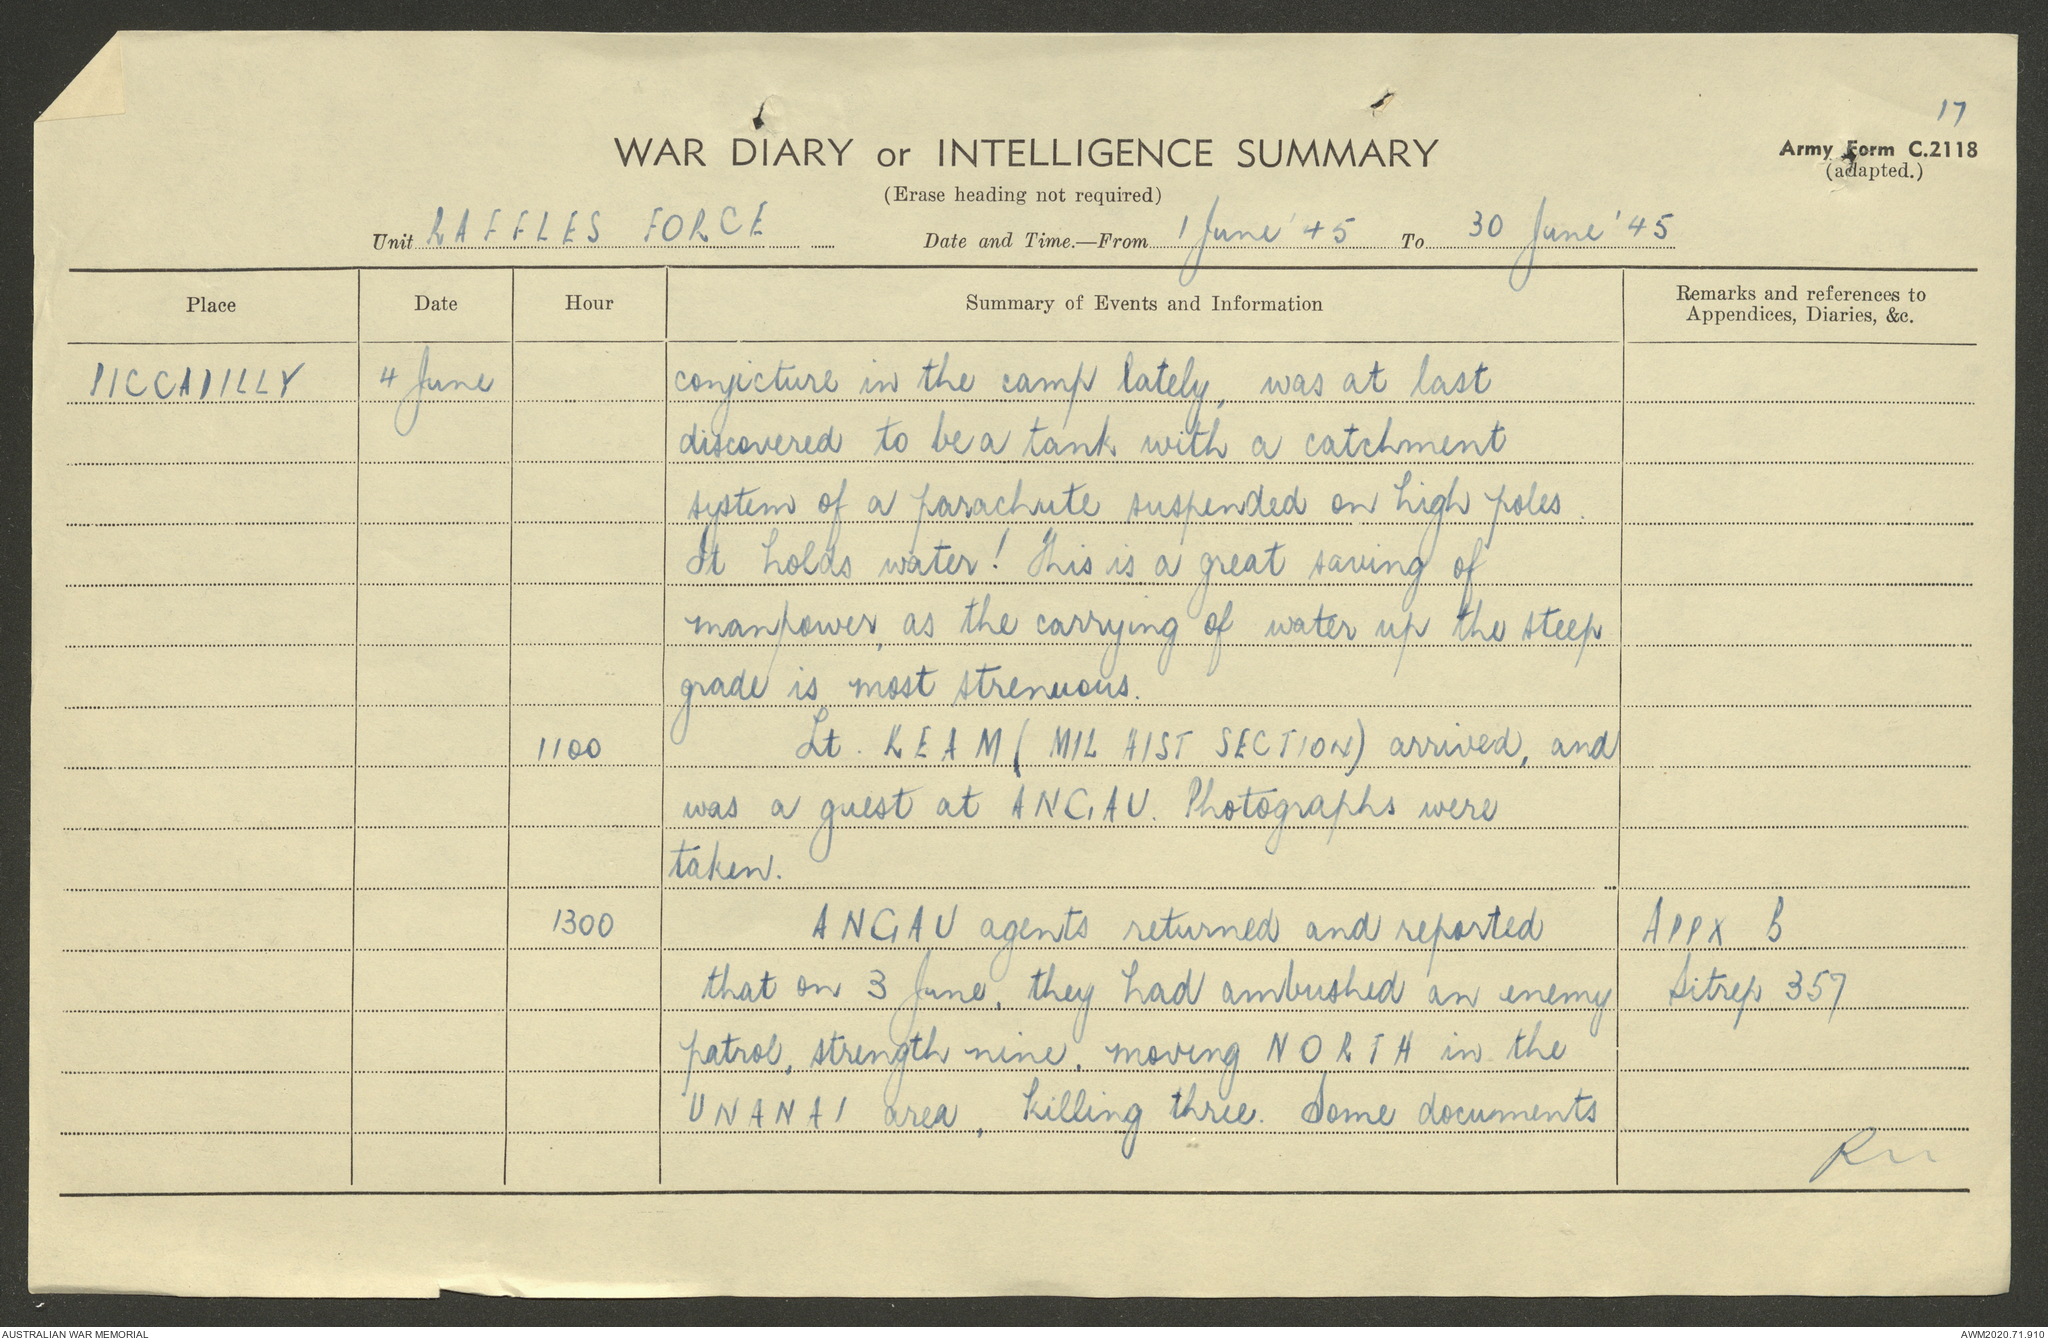 17
WAR DIARY or INTELLIGENCE SUMMARY
Army Form C.2118
(adapted.)
(Erase heading not required)
Unit RAFFLES FORCE Date and Time.—From 1 June '45 To 30 June '45
Place Date Hour Summary of Events and Information Remarks and references to
Appendices, Diaries, &c.
PICCADILLY 4 June conjicture in the camp lately, was at last
discovered to be a tank with a catchment
system of a parachute suspended on high poles.
It holds water! This is a great saving of
manpower, as the carrying of water up the steep
grade is most strenuous.
1100 Lt. KEAM (MIL HIST SECTION) arrived, and
was a guest at ANGAU. Photographs were
taken.
1300 ANGAU agents returned and reported APPX B
that on 3 June, they had ambushed an enemy Sitrep 357
patrol, strength nine, moving NORTH in the
UNANAI area, killing three. Some documents
AUSTRALIAN WAR MEMORIAL
AWM2020.71.910